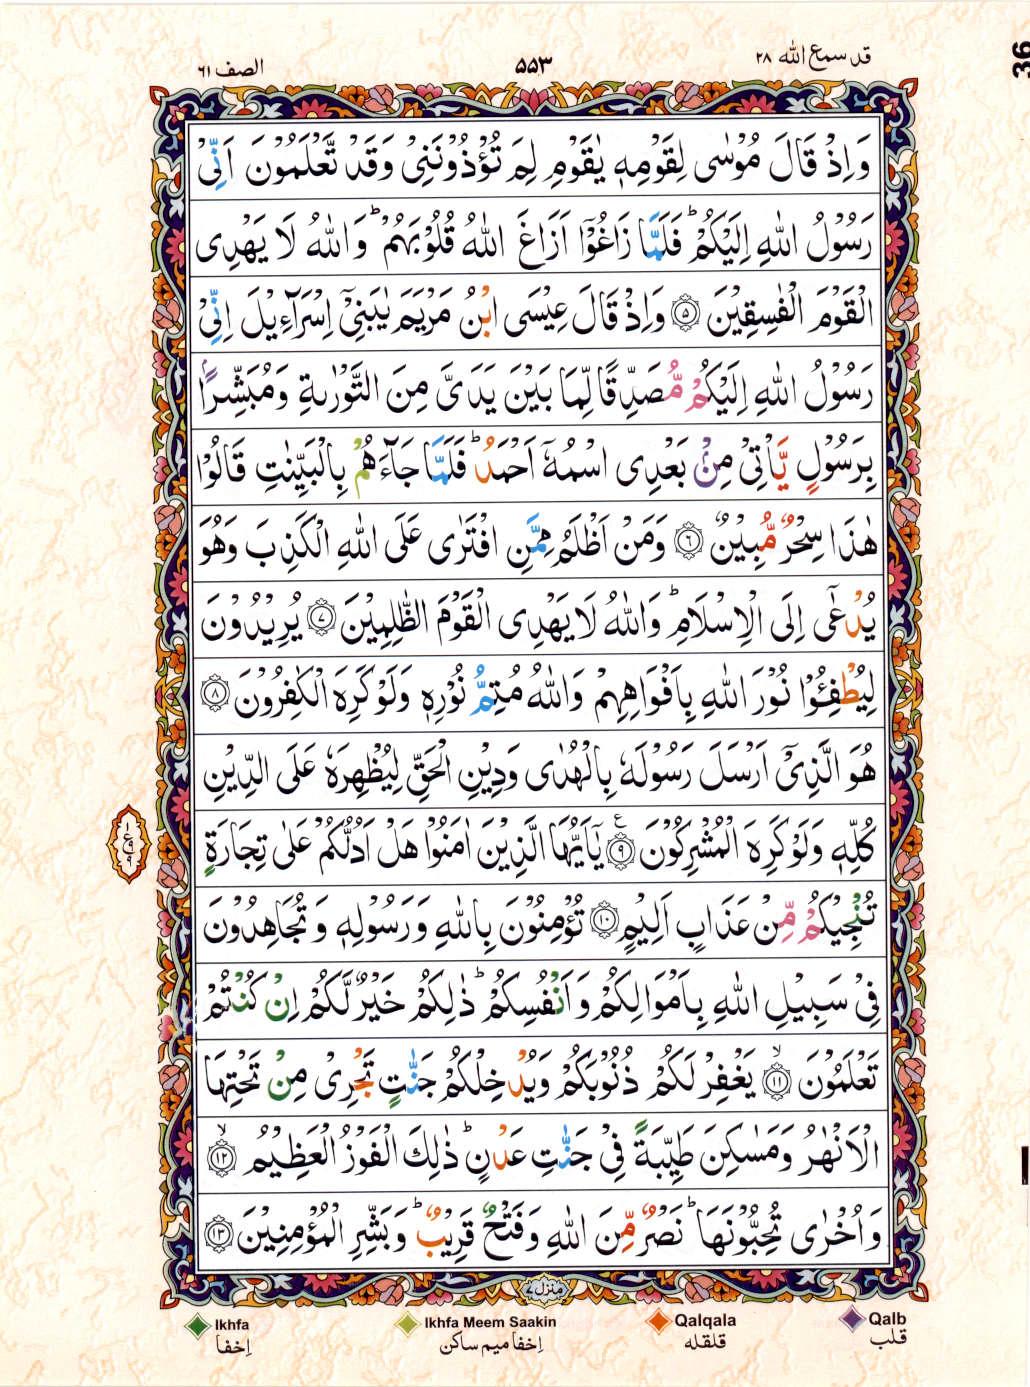 قد سمع الله ٢٨
٥٥٣
الصف ٦١
36
وَاِذْ قَالَ مُوْسٰى لِقَوْمِهٖ يٰقَوْمِ لِمَ تُؤْذُوْنَنِيْ وَقَدْ تَّعْلَمُوْنَ اَنِّيْ
رَسُوْلُ اللّٰهِ اِلَيْكُمْ ؕ فَلَمَّا زَاغُوْٓا اَزَاغَ اللّٰهُ قُلُوْبَهُمْ ؕ وَاللّٰهُ لَا يَهْدِى
الْقَوْمَ الْفٰسِقِيْنَ ۝٥ وَاِذْ قَالَ عِيْسَى ابْنُ مَرْيَمَ يٰبَنِيْٓ اِسْرَآءِيْلَ اِنِّيْ
رَسُوْلُ اللّٰهِ اِلَيْكُمْ مُّصَدِّقًا لِّمَا بَيْنَ يَدَيَّ مِنَ التَّوْرٰىةِ وَمُبَشِّرًۢا
بِرَسُوْلٍ يَّاْتِيْ مِنْۢ بَعْدِى اسْمُهٗٓ اَحْمَدُ ؕ فَلَمَّا جَآءَهُمْ بِالْبَيِّنٰتِ قَالُوْا
هٰذَا سِحْرٌ مُّبِيْنٌ ۝٦ وَمَنْ اَظْلَمُ مِمَّنِ افْتَرٰى عَلَى اللّٰهِ الْكَذِبَ وَهُوَ
يُدْعٰٓى اِلَى الْاِسْلَامِ ؕ وَاللّٰهُ لَا يَهْدِى الْقَوْمَ الظّٰلِمِيْنَ ۝٧ يُرِيْدُوْنَ
لِيُطْفِـُٔوْا نُوْرَ اللّٰهِ بِاَفْوَاهِهِمْ وَاللّٰهُ مُتِمُّ نُوْرِهٖ وَلَوْ كَرِهَ الْكٰفِرُوْنَ ۝٨
هُوَ الَّذِيْٓ اَرْسَلَ رَسُوْلَهٗ بِالْهُدٰى وَدِيْنِ الْحَقِّ لِيُظْهِرَهٗ عَلَى الدِّيْنِ
كُلِّهٖ وَلَوْ كَرِهَ الْمُشْرِكُوْنَ ۝٩ ع يٰٓاَيُّهَا الَّذِيْنَ اٰمَنُوْا هَلْ اَدُلُّكُمْ عَلٰى تِجَارَةٍ
تُنْجِيْكُمْ مِّنْ عَذَابٍ اَلِيْمٍ ۝١٠ تُؤْمِنُوْنَ بِاللّٰهِ وَرَسُوْلِهٖ وَتُجَاهِدُوْنَ
فِيْ سَبِيْلِ اللّٰهِ بِاَمْوَالِكُمْ وَاَنْفُسِكُمْ ؕ ذٰلِكُمْ خَيْرٌ لَّكُمْ اِنْ كُنْتُمْ
تَعْلَمُوْنَ ۝١١ۙ يَغْفِرْ لَكُمْ ذُنُوْبَكُمْ وَيُدْخِلْكُمْ جَنّٰتٍ تَجْرِيْ مِنْ تَحْتِهَا
الْاَنْهٰرُ وَمَسٰكِنَ طَيِّبَةً فِيْ جَنّٰتِ عَدْنٍ ؕ ذٰلِكَ الْفَوْزُ الْعَظِيْمُ ۝١٢ۙ
وَاُخْرٰى تُحِبُّوْنَهَا ؕ نَصْرٌ مِّنَ اللّٰهِ وَفَتْحٌ قَرِيْبٌ ؕ وَبَشِّرِ الْمُؤْمِنِيْنَ ۝١٣
منزل ٧
Ikhfa
إخفا
Ikhfa Meem Saakin
إخفا ميم ساكن
Qalqala
قلقله
Qalb
قلب